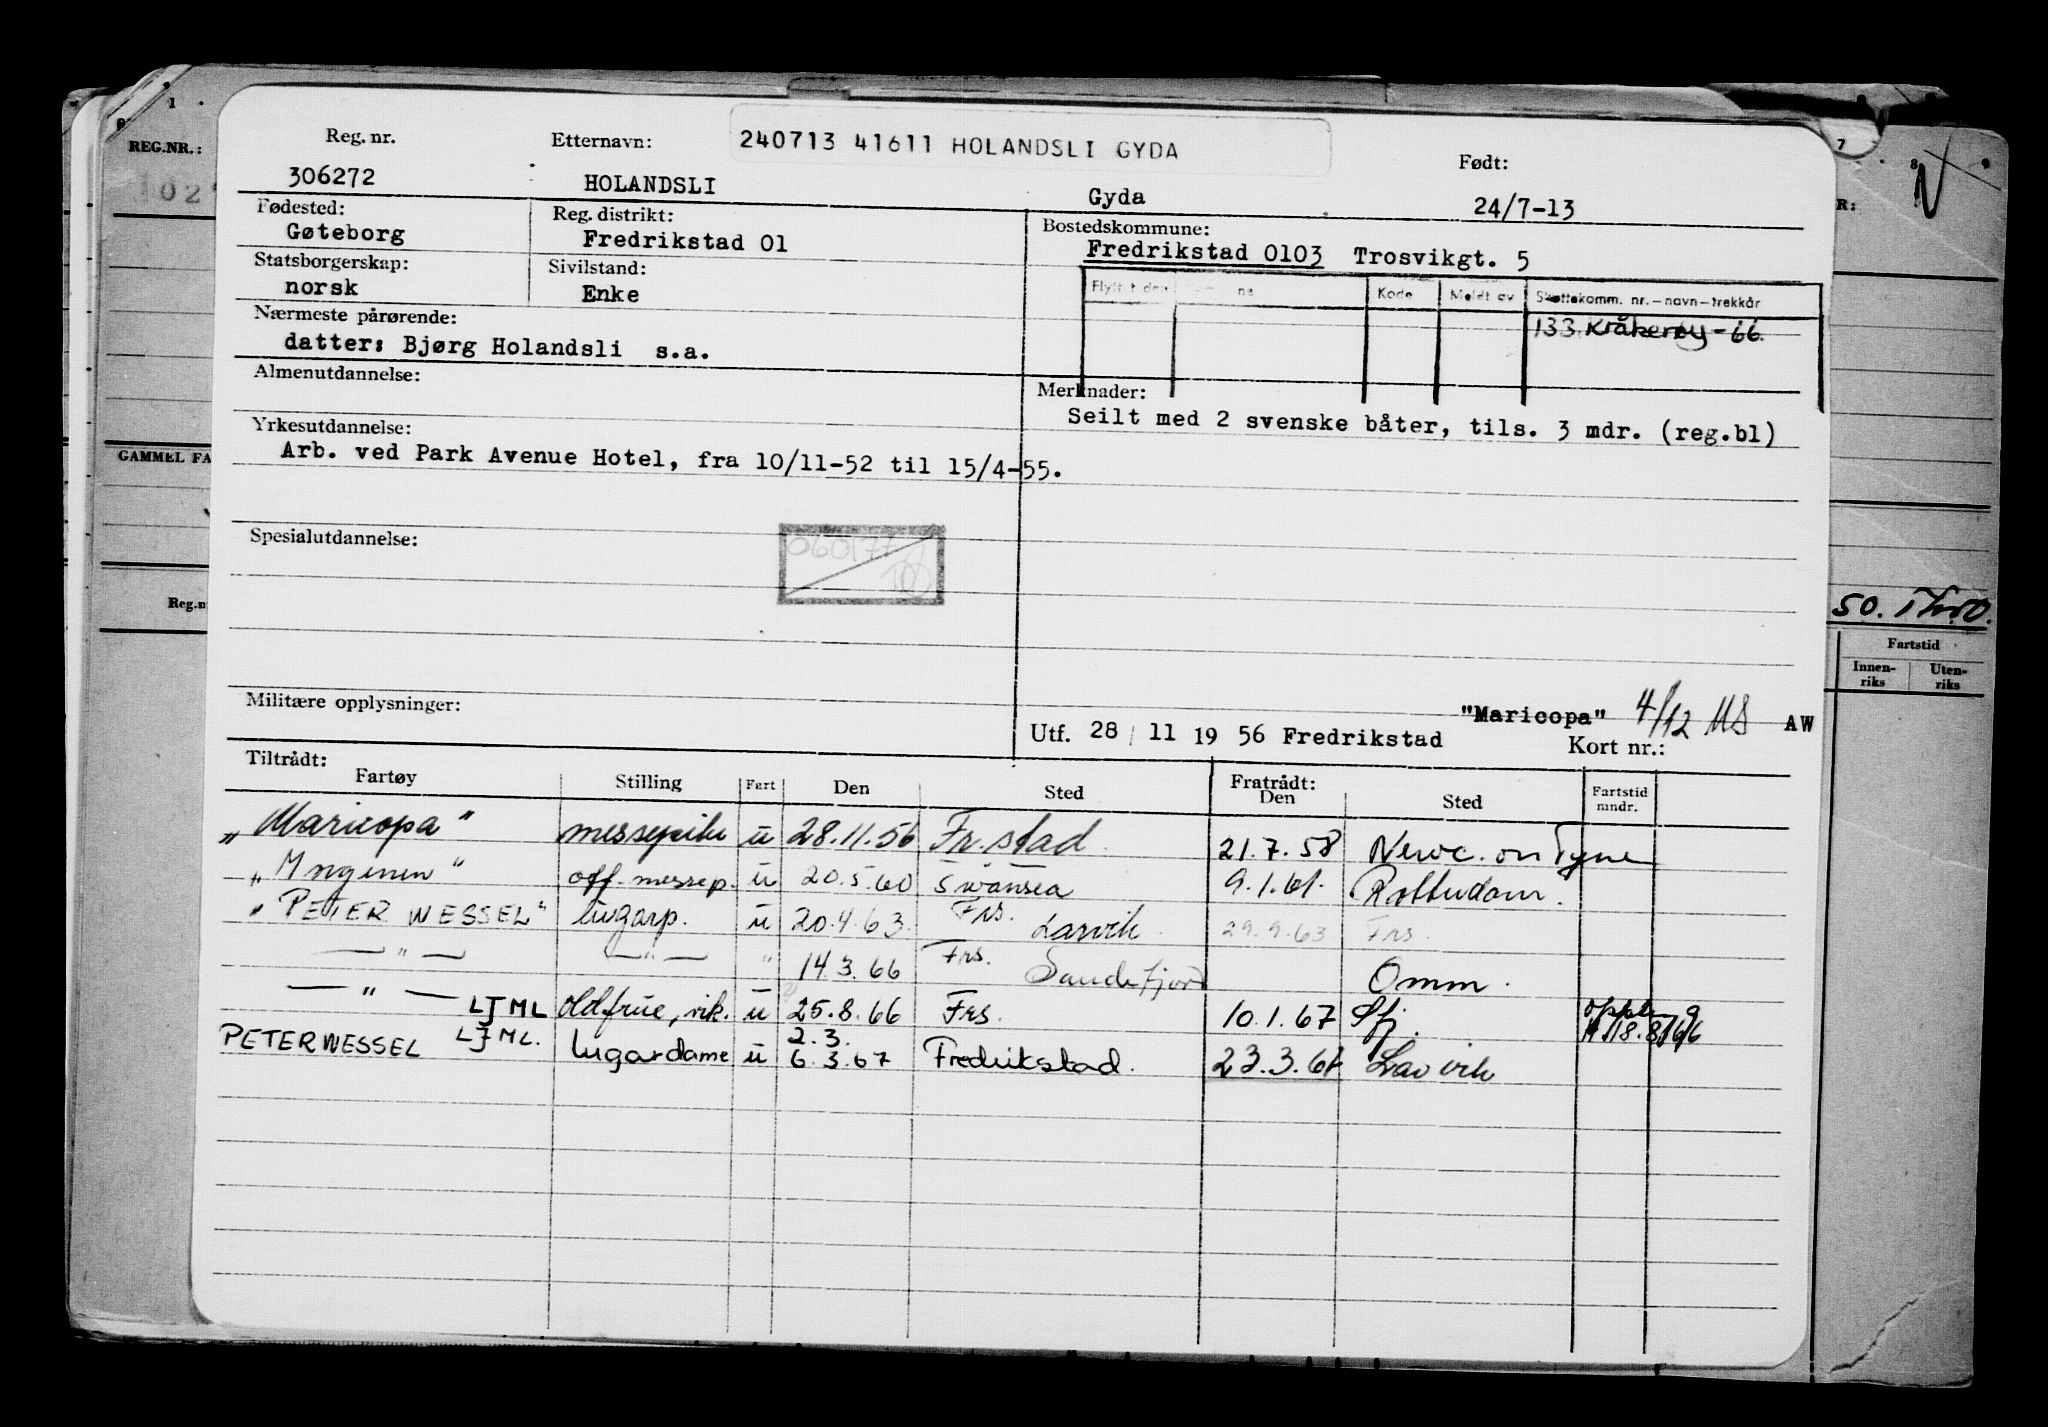 REG.NR.:
GAMMEL FA
Reg.n
240713 41611 HOLANDSLI GYDA
Reg. nr. Etternavn: Født:
306272 HOLANDSLI Gyda 24/7-13
Fødested: Reg. distrikt: Bostedskommune:
Gøteborg Fredrikstad 01 Fredrikstad 0103 Trosvikgt. 5
Statsborgerskap: Sivilstand:
norsk Enke
Kode Meldt av Skattekomm. nr. – navn – trekkår
133 Kråkerøy - 66.
Nærmeste pårørende:
datter: Bjørg Holandsli s.a.
Almenutdannelse: Merknader:
Seilt med 2 svenske båter, tils. 3 mdr. (reg.bl)
Yrkesutdannelse:
Arb. ved Park Avenue Hotel, fra 10/11-52 til 15/4-55.
Spesialutdannelse:
50.
Fartstid
Innen-riks Uten-riks
Militære opplysninger:
"Maricopa" 4/12 AW
Utf. 28 / 11 19 56 Fredrikstad Kort nr.:
Tiltrådt: Fratrådt:
Fartøy Stilling Fart Den Sted Den Sted Fartstid mndr.
"Maricopa" messepike u 28.11.56 Fr.stad 21.7.58 Newc. on Tyne
off. messep. u 20.5.60 Swansea 9.1.61. Rotterdam.
"PETER WESSEL" lugarp. u 20.4.63 Frs. Larvik 29.9.63 Frs.
— " — — " — " 14.3.66 Frs. Sandefjord Omm.
— " — LJML oldfrue, vik. u 25.8.66 Frs. 10.1.67 Sfj.
PETER WESSEL LJML. lugardame u 2.3. 6.3.67 Fredrikstad. 23.3.67 Larvik